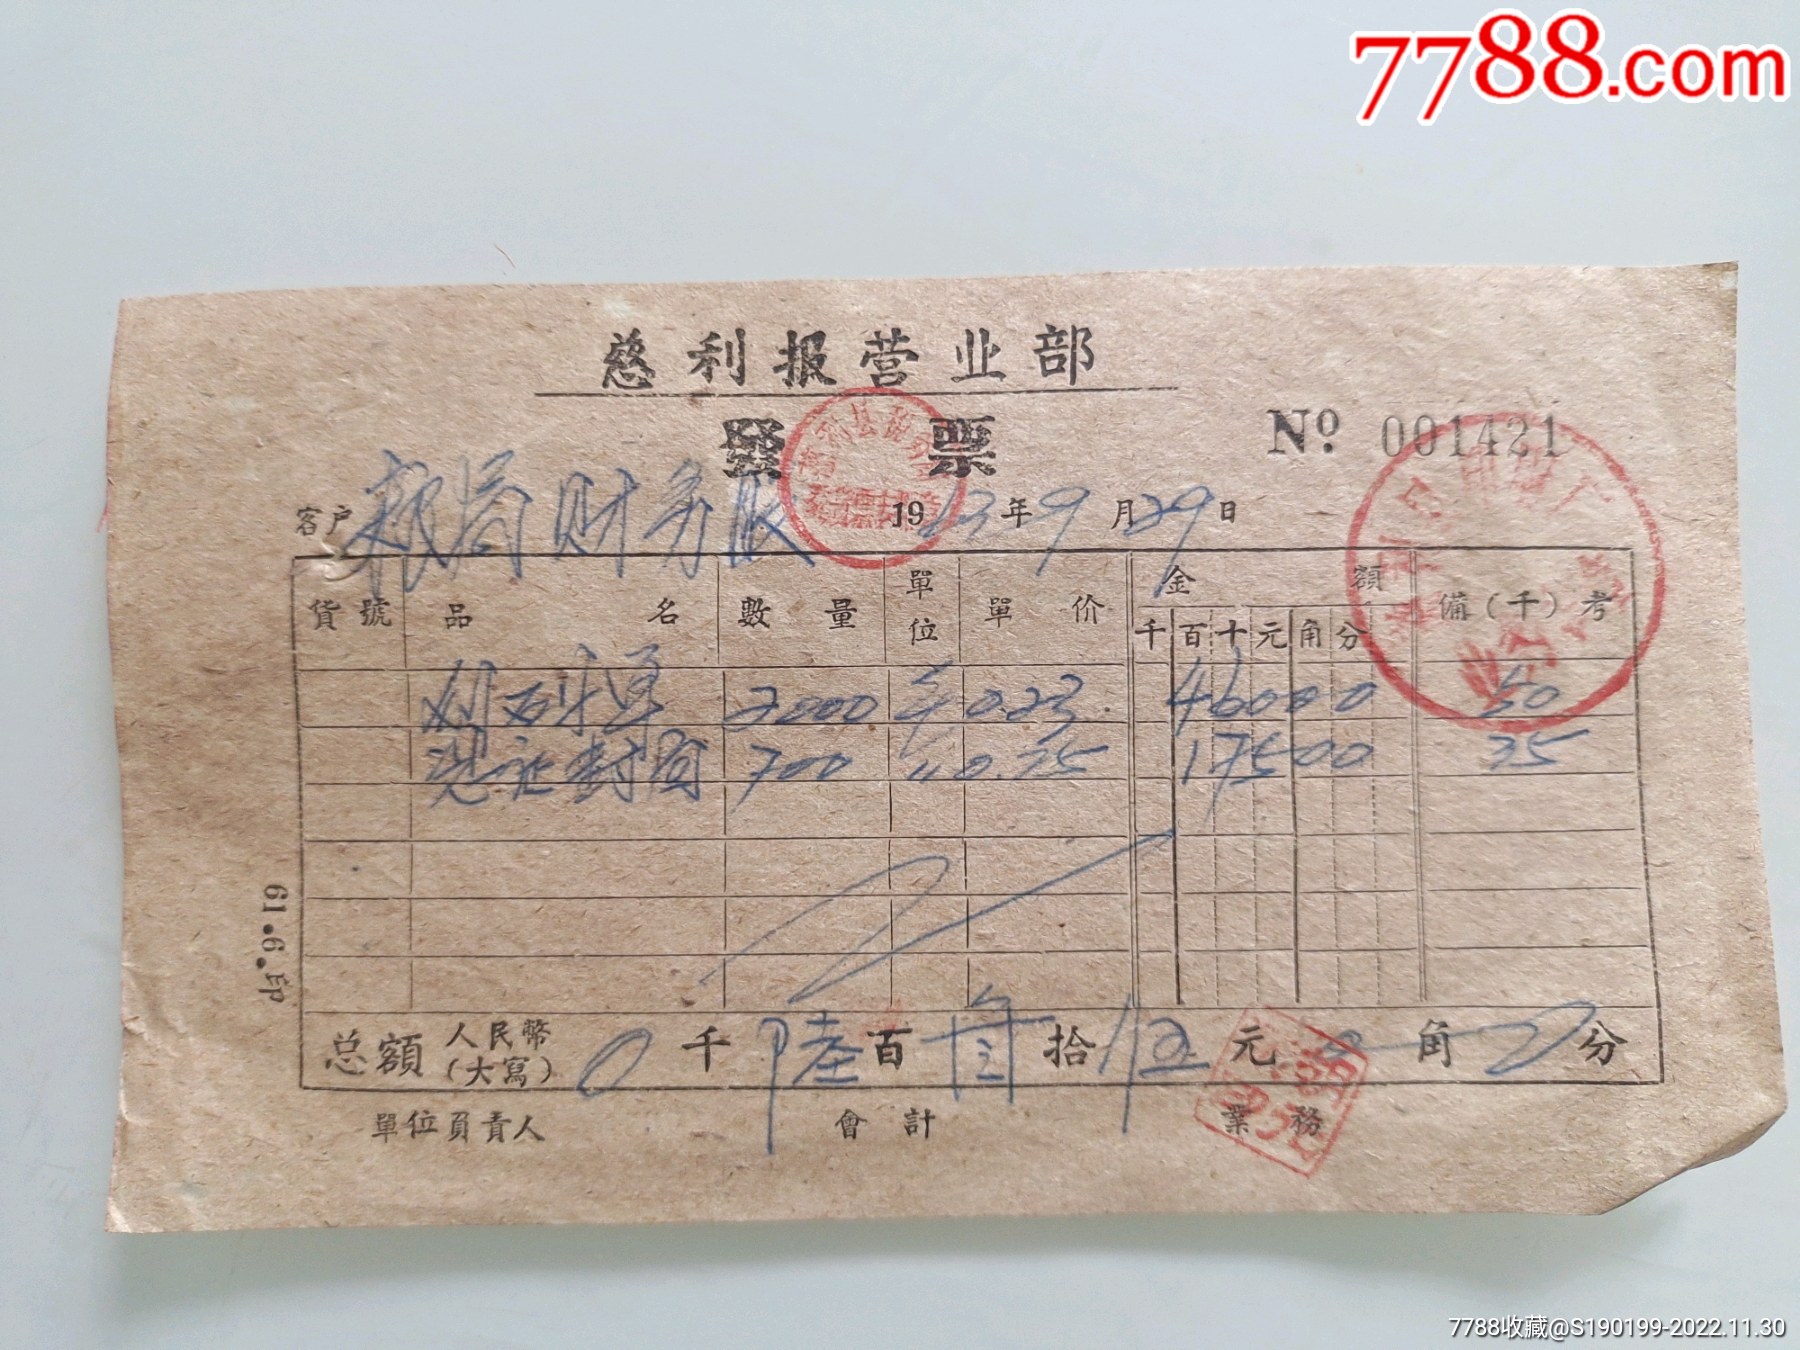 7788.com
慈利报营业部
發票
№ 001421
客户 财务股 1963年9月29日
貨號 品名 數量 單位 單价 金額 備(千)考
千百十元角分
2000 0.23 46000 50
凭证封面 700 〃 0.25 17500 25
61.6.印
总額 人民幣(大寫) 0千陆百叁拾伍元0角0分
單位負責人 會計 業務
7788收藏@S190199-2022.11.30